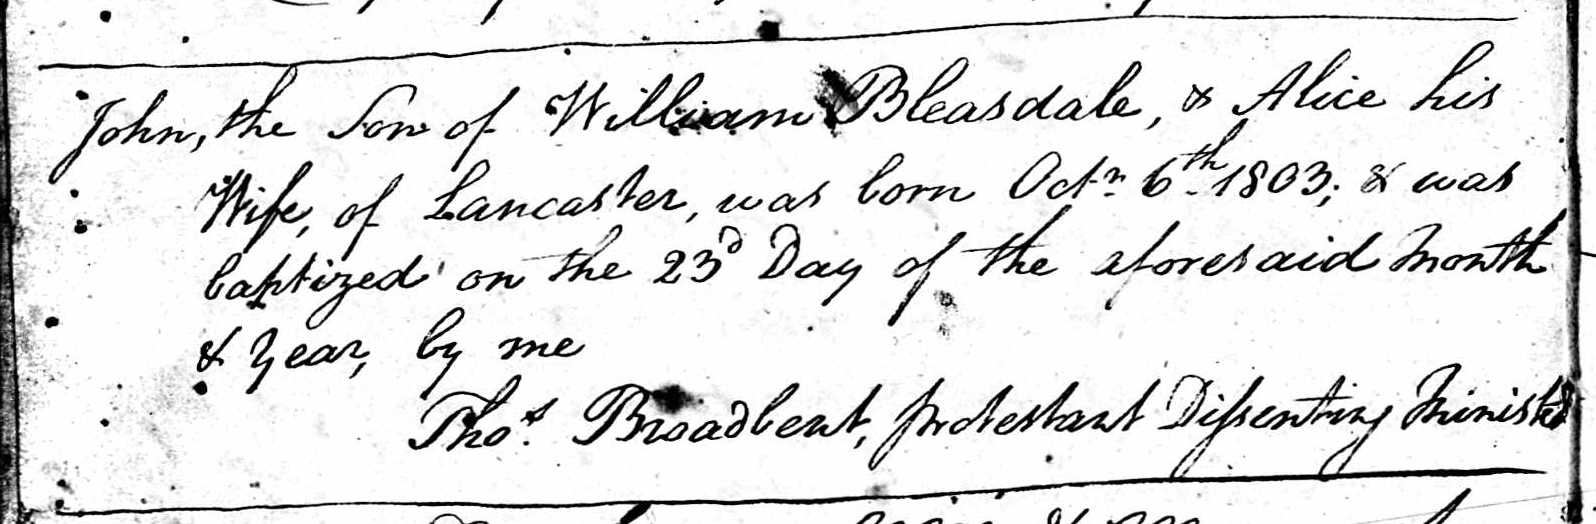 John, the Son of William Bleasdale, & Alice his
Wife, of Lancaster, was born Octr. 6th. 1803; & was
baptized on the 23d Day of the aforesaid Month
& Year, by me
Thos. Broadbent, protestant Dissenting Minister